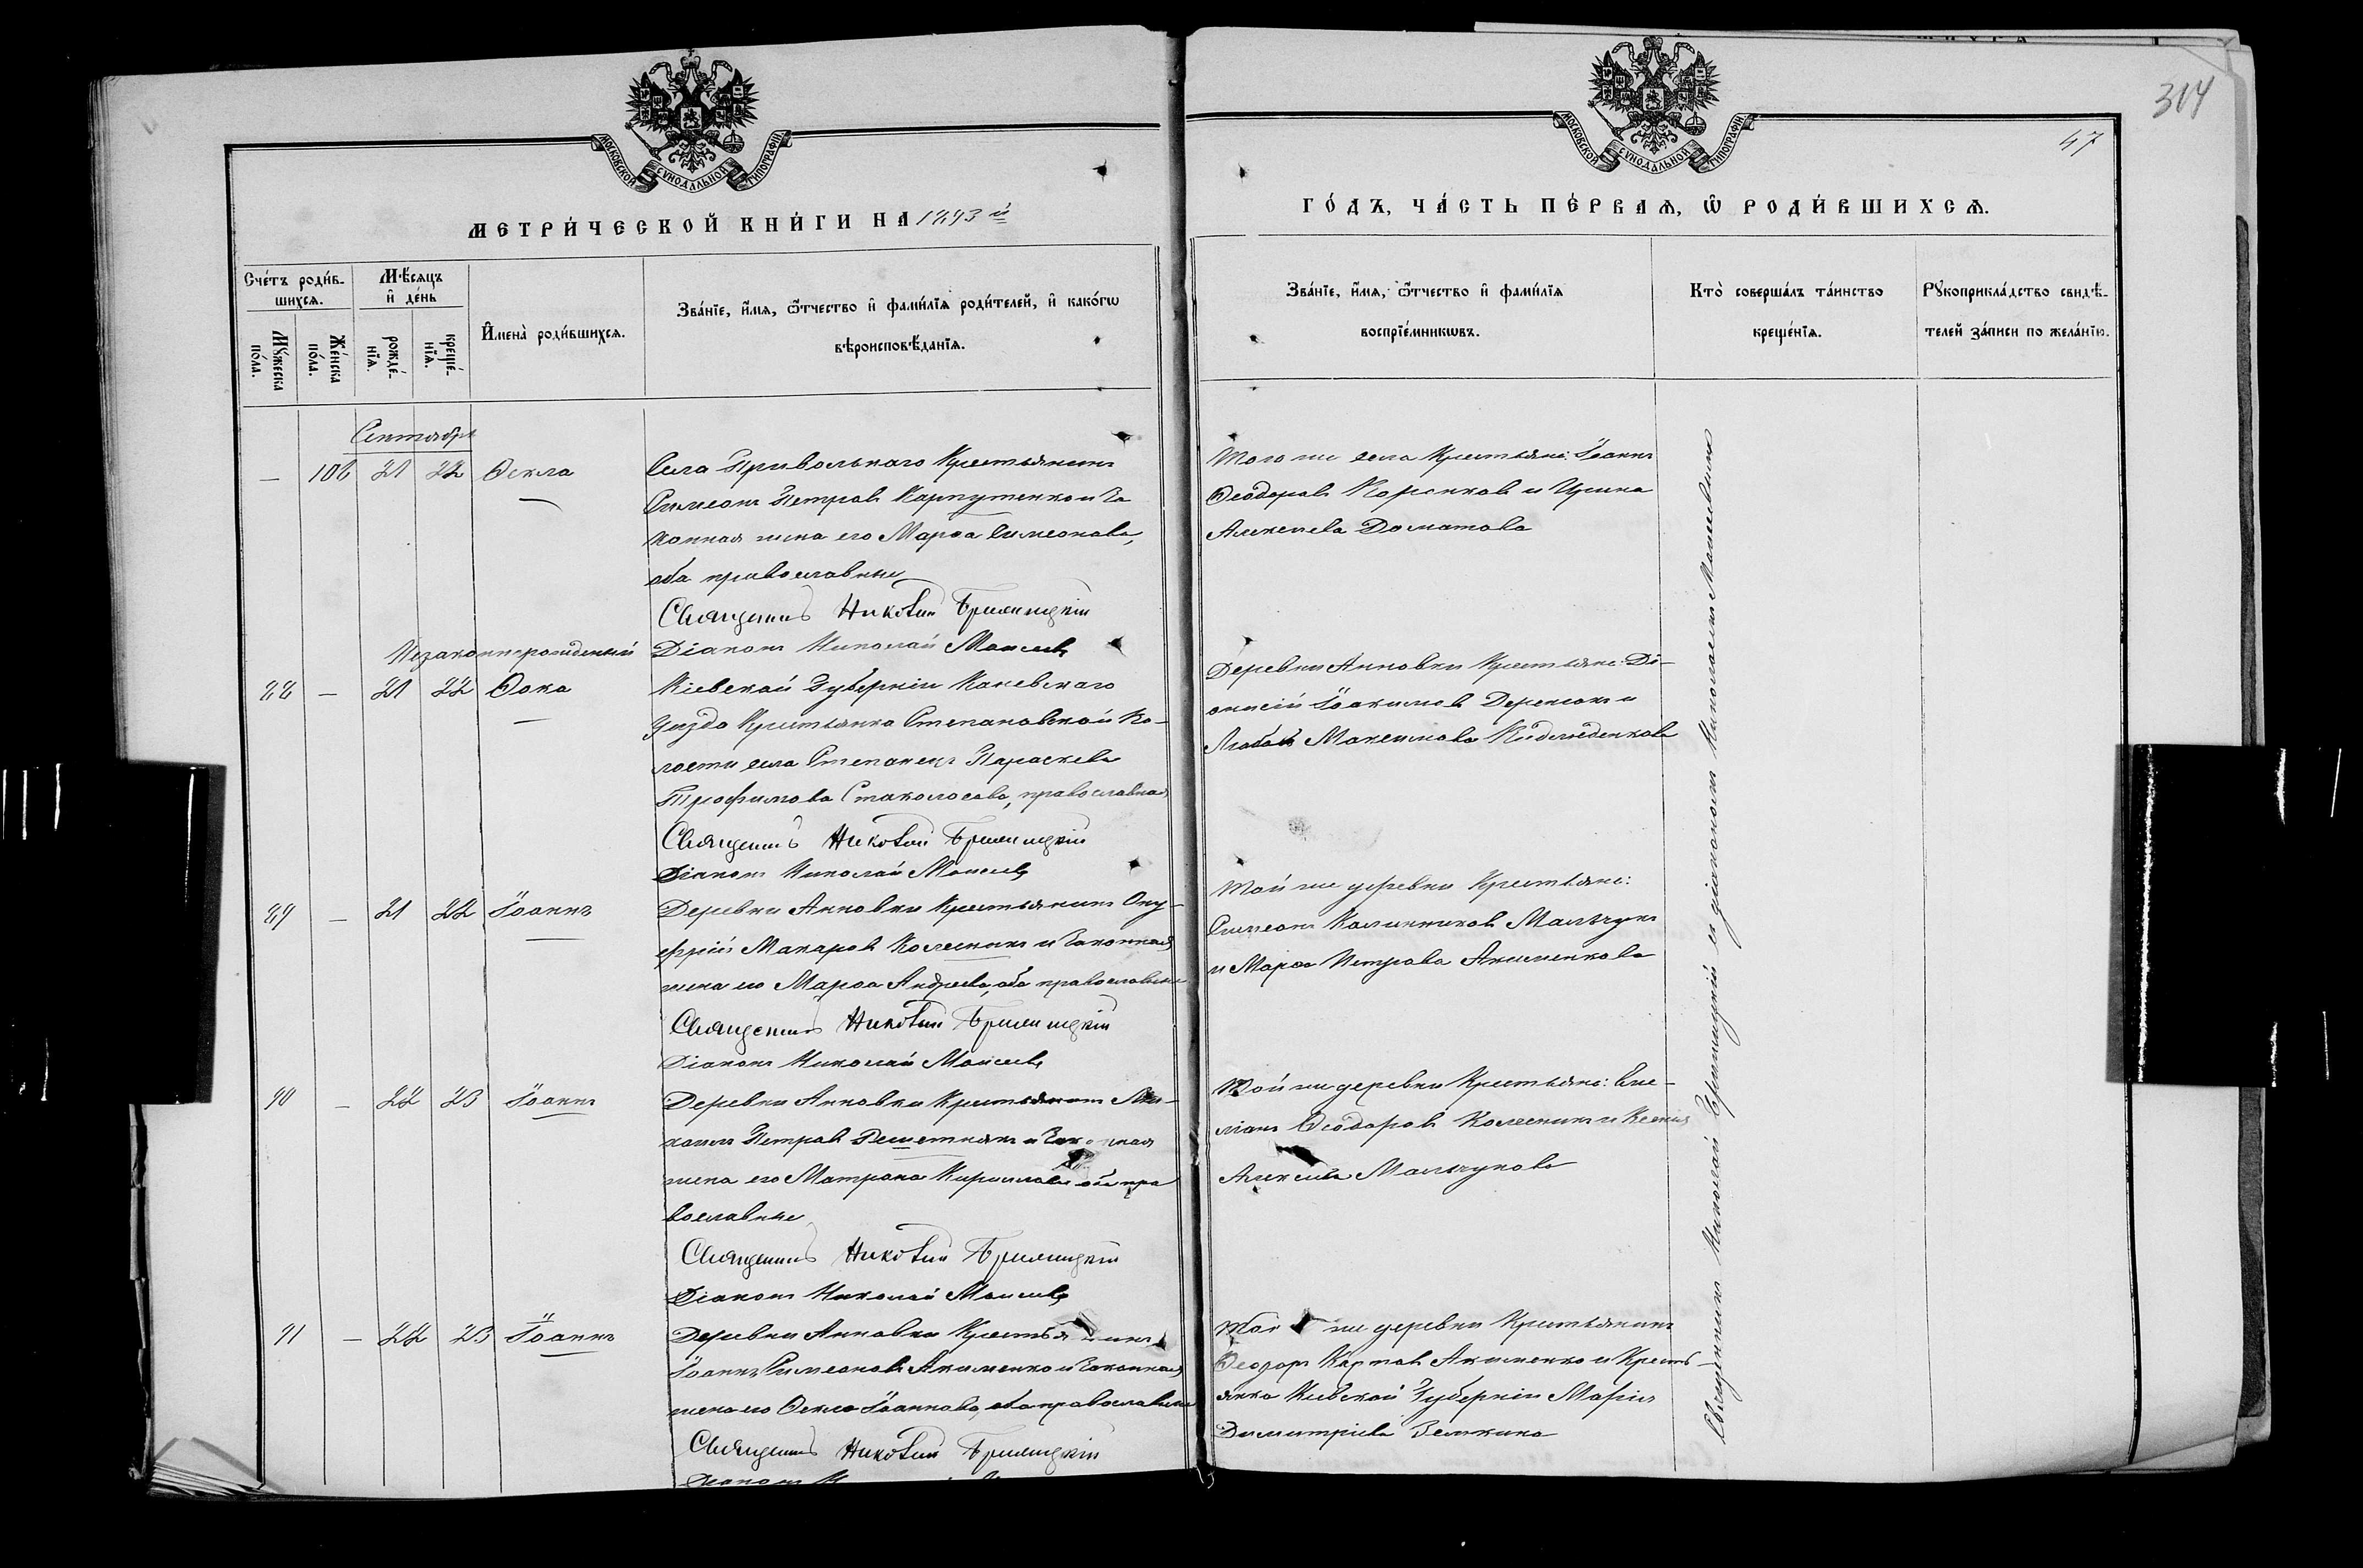 314
47
МОСКОВСКОЙ СѴНОДАЛЬНОЙ ТИПОГРАФІИ
МОСКОВСКОЙ СѴНОДАЛЬНОЙ ТИПОГРАФІИ
МЕТРИ́ЧЕСКОЙ КНИ́ГИ НА 1893 й
ГО́ДЪ, ЧА́СТЬ ПЕ́РВАЯ, Ѡ РОДИ́ВШИХСЯ.
Сче́тъ роди́в-
шихся.
Мꙋ́жеска по́ла.
Же́нска по́ла.
Мѣ́сяцъ и де́нь
рожде́-
нїя.
креще́-
нїя.
Имена̀ роди́вшихся.
Зва́нїе, и́мя, ѻ҆́тчество и фами́лїя роди́телей, и како́гѡ
вѣроисповѣ́данїя.
Зва́нїе, и́мя, ѻ҆́тчество и фами́лїя
воспрїе́мникѡвъ.
Кто̀ соверша́лъ та́инство
креще́нїя.
Рꙋкоприкла́дство свидѣ́-
телей за́писи по жела́нїю.
Сентябрь
— 106 21 22 Ѳекла
Села Привольнаго Крестьянинъ
Симеонъ Петровъ Карпутенко и За
конная жена его Марѳа Симеонова,
оба православные
Священникъ Николай
Діаконъ Николай Моисеевъ
Того же села Крестьяне: Іоаннъ
Ѳеодоровъ и Ирина
Алексеева Доматова
Незаконнорожденный
88 — 21 22 Ѳока
Кіевской Губерніи Каневскаго
уезда Крестьянка Степановской Во-
лости села Степанецъ Параскева
Трофимова православная
Священникъ Николай
Діаконъ Николай Моисеевъ
Деревни Анновки Крестьяне: Ді-
онисій Іоакимовъ и
Любовь Максимова
89 — 21 22 Іоаннъ
Деревни Анновки Крестьянинъ Ону-
фрій Макаровъ Колесникъ и Законная
жена его Марѳа Андреева, оба православные
Священникъ Николай
Діаконъ Николай Моисеевъ
Той же деревни Крестьяне:
Симеонъ Калинниковъ Мальчукъ
и Марѳа Петрова Акименкова
90 — 22 23 Іоаннъ
Деревни Анновки Крестьянинъ Ми-
хаилъ Петровъ Решетнякъ и Законная
жена его Матрона Кириллова оба пра
вославные
Священникъ Николай
Діаконъ Николай Моисеевъ
Той же деревни Крестьяне: Еме-
ліанъ Ѳеодоровъ Колесникъ и Ксенія
Алексеева Мальчукова
91 — 22 23 Іоаннъ
Деревни Анновки Крестьянинъ
Іоаннъ Симеоновъ Акименко и Законная
жена его Ѳекла Іоаннова, оба православные
Священникъ Николай
Той же деревни Крестьянинъ
Ѳеодоръ Карповъ Акименко и Кресть-
янка Кіевской Губерніи Марія
Димитріева
Священникъ Николай съ діакономъ Николаемъ Моисеевымъ